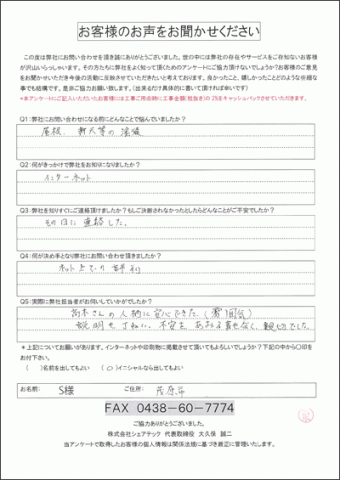 お客様のお声をお聞かせください
この度は弊社にお問い合わせを頂き誠にありがとうございました。世の中には弊社の存在やサービスをご存知ないお客様
が沢山いらっしゃいます。その方たちに弊社をよく知って頂くためのアンケートにご協力頂けないでしょうか?お客様のご意見
をお聞かせいただき今後の活動に反映させていただきたいと考えております。良かったこと、嬉しかったことどのような些細な
事でも結構です。是非ご協力お願い致します。(出来るだけ具体的に書いて頂ければ幸いです)
*本アンケートにご記入いただいたお客様には工事ご用命時に工事金額(税抜き)の 2%をキャッシュバックさせていただきます。
Q1:弊社にお問い合わせになる前にどんなことで悩んでいましたか?
屋根、軒天等の塗装
Q2:何がきっかけで弊社をお知りになりましたか?
インターネット
Q3:弊社を知りすぐにご連絡頂けましたか?もしご決断されなかったとしたらどんなことがご不安でしたか?
その日に連絡した。
Q4:何が決め手となり弊社にお問い合わせ頂きましたか?
ネット上での評判
Q5:実際に弊社担当者がお伺いしていかがでしたか?
高木さんの人柄に安心できた(雰囲気)
説明も丁ねい、不安を あおる事もなく、親切でした。
*上記についてお願いがあります。インターネットや印刷物に掲載させて頂いてもよろしいでしょうか?下記の中から〇印を
お付下さい。
( )名前を出してもよい (○)イニシャルなら出してもよい
お名前: S様 ご住所: 茂原市
FAX 0438-60-7774
ご協力ありがとうございました。
株式会社シェアテック 代表取締役 大久保 誠二
当アンケートで取得したお客様の個人情報は関係法規に基づき厳正に管理いたします。